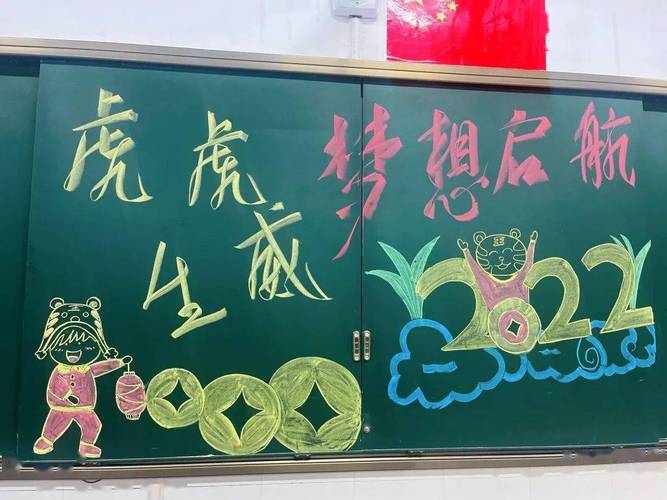 虎虎
生威
梦想启航
2022
王